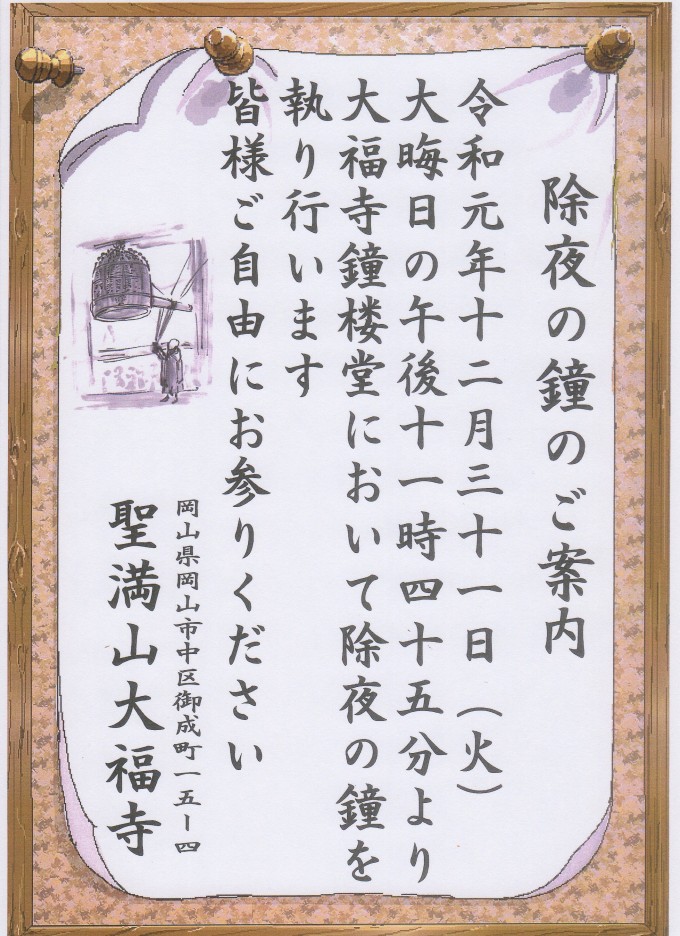 除夜の鐘のご案内
令和元年十二月三十一日（火）
大晦日の午後十一時四十五分より
大福寺鐘楼堂において除夜の鐘を
執り行います
皆様ご自由にお参りください
岡山県岡山市中区御成町一五ー四
聖満山大福寺